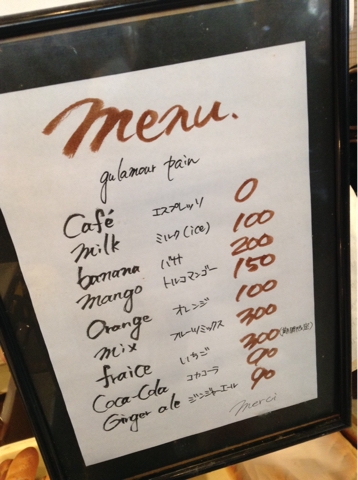 menu.
gulamour pain
Café エスプレッソ 0
milk ミルク(ice) 100
banana バナナ 200
mango トルコマンゴー 150
Orange オレンジ 100
mix フルーツミックス 300
fraice いちご 300
Coca-Cola コカコーラ 90
Ginger ale ジンジャーエール 90
merci